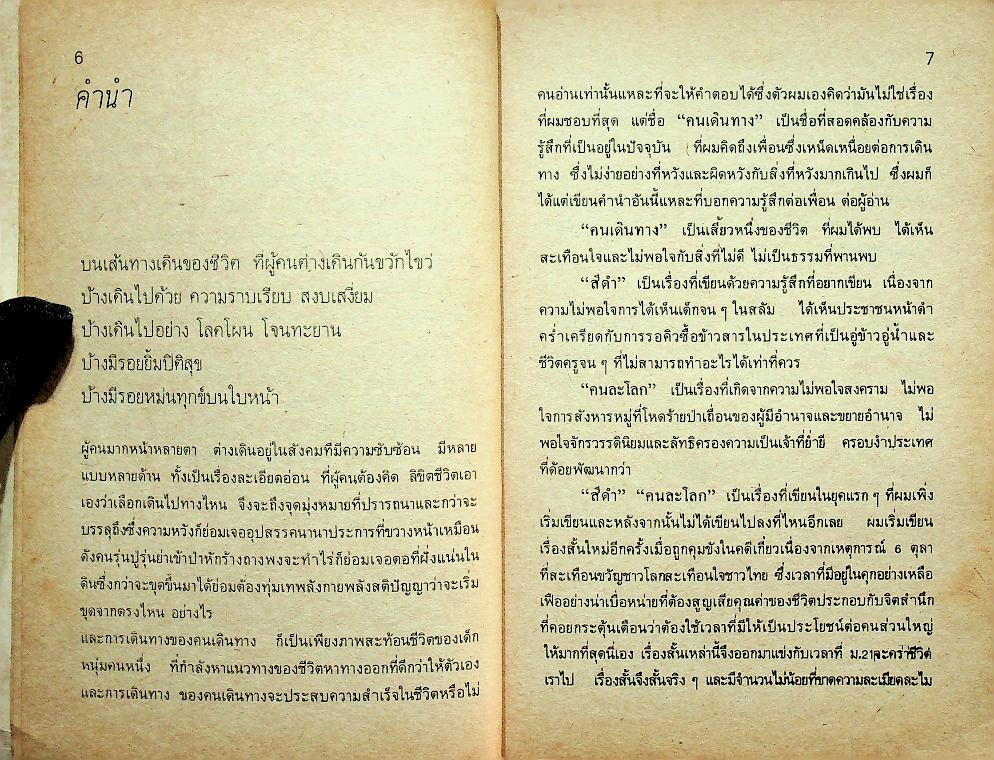 6
คำนำ
บนเส้นทางเดินของชีวิต ที่ผู้คนต่างเดินกันขวักไขว่
บ้างเดินไปด้วย ความราบเรียบ สงบเสงี่ยม
บ้างเดินไปอย่าง โลดโผน โจนทะยาน
บ้างมีรอยยิ้มปิติสุข
บ้างมีรอยหม่นทุกข์บนใบหน้า
ผู้คนมากหน้าหลายตา ต่างเดินอยู่ในสังคมที่มีความซับซ้อน มีหลาย
แบบหลายด้าน ทั้งเป็นเรื่องละเอียดอ่อน ที่ผู้คนต้องคิด ลิขิตชีวิตเอา
เองว่าเลือกเดินไปทางไหน จึงจะถึงจุดมุ่งหมายที่ปรารถนาและกว่าจะ
บรรลุถึงซึ่งความหวังก็ย่อมเจออุปสรรคนานาประการที่ขวางหน้าเหมือน
ดังคนรุ่นปู่รุ่นย่าเข้าป่าหักร้างถางพงจะทำไร่ก็ย่อมเจอตอที่ฝังแน่นใน
ดินซึ่งกว่าจะขุดขึ้นมาได้ย่อมต้องทุ่มเทพลังกายพลังสติปัญญาว่าจะเริ่ม
ขุดจากตรงไหน อย่างไร
และการเดินทางของคนเดินทาง ก็เป็นเพียงภาพสะท้อนชีวิตของเด็ก
หนุ่มคนหนึ่ง ที่กำลังหาแนวทางของชีวิตหาทางออกที่ดีกว่าให้ตัวเอง
และการเดินทาง ของคนเดินทางจะประสบความสำเร็จในชีวิตหรือไม่
7
คนอ่านเท่านั้นแหละที่จะให้คำตอบได้ซึ่งตัวผมเองคิดว่ามันไม่ใช่เรื่อง
ที่ผมชอบที่สุด แต่ชื่อ “คนเดินทาง” เป็นชื่อที่สอดคล้องกับความ
รู้สึกที่เป็นอยู่ในปัจจุบัน ที่ผมคิดถึงเพื่อนซึ่งเหน็ดเหนื่อยต่อการเดิน
ทาง ซึ่งไม่ง่ายอย่างที่หวังและผิดหวังกับสิ่งที่หวังมากเกินไป ซึ่งผมก็
ได้แต่เขียนคำนำอันนี้แหละที่บอกความรู้สึกต่อเพื่อน ต่อผู้อ่าน
“คนเดินทาง” เป็นเสี้ยวหนึ่งของชีวิต ที่ผมได้พบ ได้เห็น
สะเทือนใจและไม่พอใจกับสิ่งที่ไม่ดี ไม่เป็นธรรมที่พานพบ
“สีดำ” เป็นเรื่องที่เขียนด้วยความรู้สึกที่อยากเขียน เนื่องจาก
ความไม่พอใจการได้เห็นเด็กจน ๆ ในสลัม ได้เห็นประชาชนหน้าดำ
คร่ำเครียดกับการรอคิวซื้อข้าวสารในประเทศที่เป็นอู่ข้าวอู่น้ำและ
ชีวิตครูจน ๆ ที่ไม่สามารถทำอะไรได้เท่าที่ควร
“คนละโลก” เป็นเรื่องที่เกิดจากความไม่พอใจสงคราม ไม่พอ
ใจการสังหารหมู่ที่โหดร้ายป่าเถื่อนของผู้มีอำนาจและขยายอำนาจ ไม่
พอใจจักรวรรดินิยมและลัทธิครองความเป็นเจ้าที่ย่ำยี ครอบงำประเทศ
ที่ด้อยพัฒนากว่า
“สีดำ” “คนละโลก” เป็นเรื่องที่เขียนในยุคแรก ๆ ที่ผมเพิ่ง
เริ่มเขียนและหลังจากนั้นไม่ได้เขียนไปลงที่ไหนอีกเลย ผมเริ่มเขียน
เรื่องสั้นใหม่อีกครั้งเมื่อถูกคุมขังในคดีเกี่ยวเนื่องจากเหตุการณ์ 6 ตุลา
ที่สะเทือนขวัญชาวโลกสะเทือนใจชาวไทย ซึ่งเวลาที่มีอยู่ในคุกอย่างเหลือ
เฟืออย่างน่าเบื่อหน่ายที่ต้องสูญเสียคุณค่าของชีวิตประกอบกับจิตสำนึก
ที่คอยกระตุ้นเตือนว่าต้องใช้เวลาที่มีให้เป็นประโยชน์ต่อคนส่วนใหญ่
ให้มากที่สุดนี่เอง เรื่องสั้นเหล่านี้จึงออกมาแข่งกับเวลาที่ ม.21จะคร่าชีวิต
เราไป เรื่องสั้นจึงสั้นจริง ๆ และมีจำนวนไม่น้อยที่ขาดความละเมียดละไม